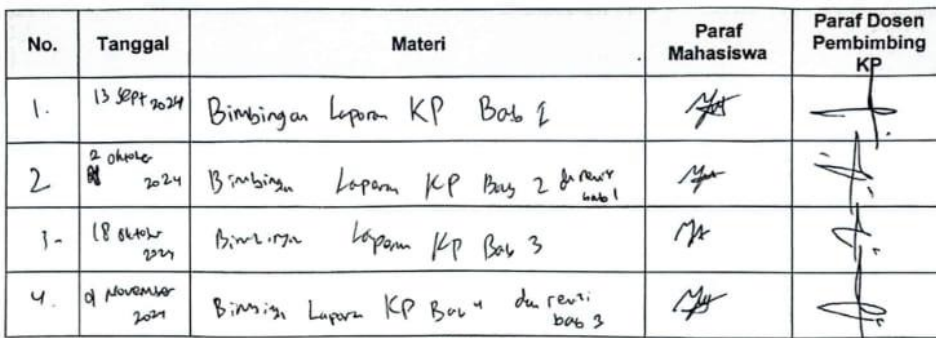 No. Tanggal Materi Paraf Mahasiswa Paraf Dosen Pembimbing KP
1. 13 Sept 2024 Bimbingan Laporan KP Bab 1
2 2 Oktober 2024 Bimbingan Laporan KP Bab 2 dan revisi bab 1
3- 18 Oktober 2024 Bimbingan Laporan KP Bab 3
4. November 2024 Bimbingan Laporan KP Bab 4 dan revisi bab 3